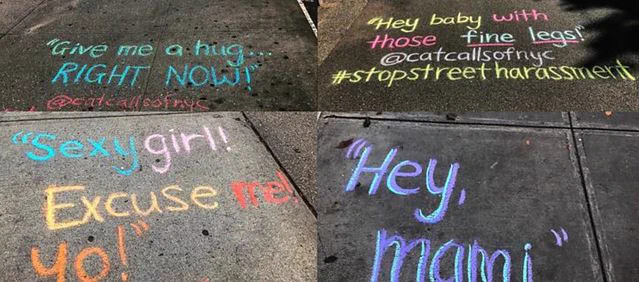 "Give me a hug...
RIGHT NOW!"
@catcallsofnyc
"Hey baby with
those fine legs!"
@catcallsofnyc
#stopstreetharassment
"Sexy girl!
Excuse me!
yo!"
"Hey,
mami"